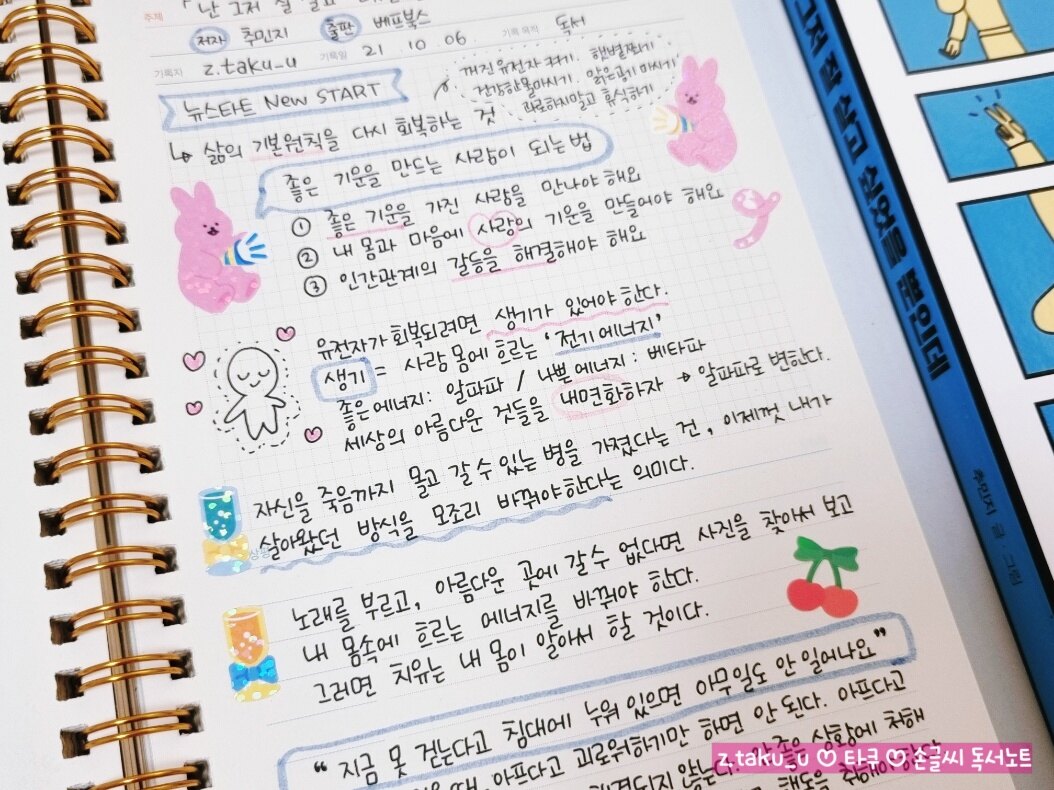 주제 「난 그저 잘
저자 추민지 출판 베프북스
기록자 z.taku_u 기록일 21 . 10 . 06 기록 목적 독서
뉴스타트 New START
꺼진 유전자 켜기. 햇볕쬐기
건강한물마시기. 맑은공기 마시기
과로하지말고 휴식하기
↳ 삶의 기본원칙을 다시 회복하는 것
좋은 기운을 만드는 사람이 되는법
① 좋은 기운을 가진 사람을 만나야 해요
② 내 몸과 마음에 사랑의 기운을 만들어야 해요
③ 인간관계의 갈등을 해결해야 해요
유전자가 회복되려면 생기가 있어야 한다.
생기 = 사람 몸에 흐르는 '전기에너지'
좋은에너지: 알파파 / 나쁜에너지: 베타파
세상의 아름다운 것들을 내면화하자 → 알파파로 변한다.
자신을 죽음까지 몰고 갈 수 있는 병을 가졌다는 건, 이제껏 내가
살아왔던 방식을 모조리 바꿔야한다는 의미다.
노래를 부르고, 아름다운 곳에 갈 수 없다면 사진을 찾아서 보고
내 몸속에 흐르는 에너지를 바꿔야 한다.
그러면 치유는 내 몸이 알아서 할 것이다.
"지금 못 걷는다고 침대에 누워 있으면 아무일도 안 일어나요"
아프다고 괴로워하기만 하면 안 된다. 아프다고
상황에 처해
그저 잘 살고 싶었을 뿐인데
추민지 글·그림
z.taku_u ♡ 타쿠 ♡ 손글씨 독서노트